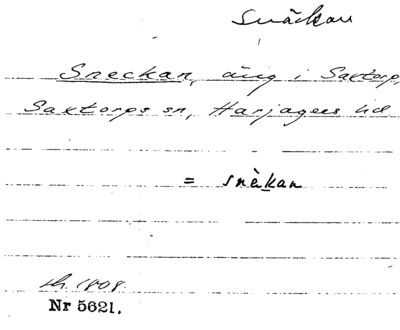 Snäckan
Sneckan, äng i Saxtorp,
Saxtorps sn, Harjagers hd
= snèkan
sh. 1808.
Nr 5621.